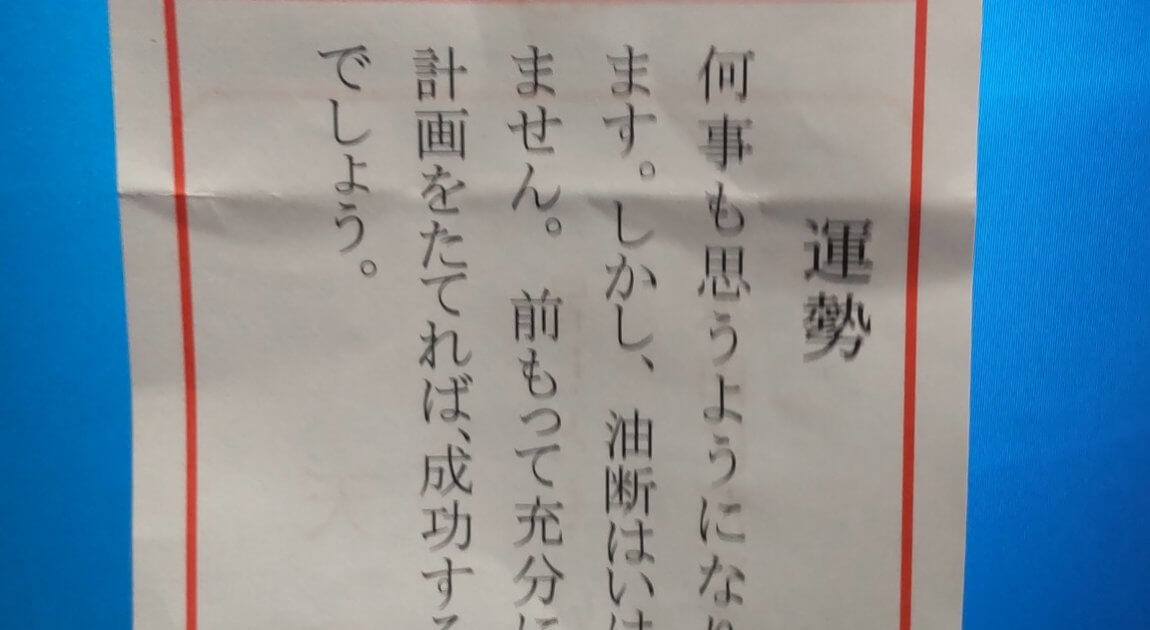 運勢
何事も思うようになり
ます。しかし、油断はいけ
ません。前もって充分に
計画をたてれば、成功する
でしょう。